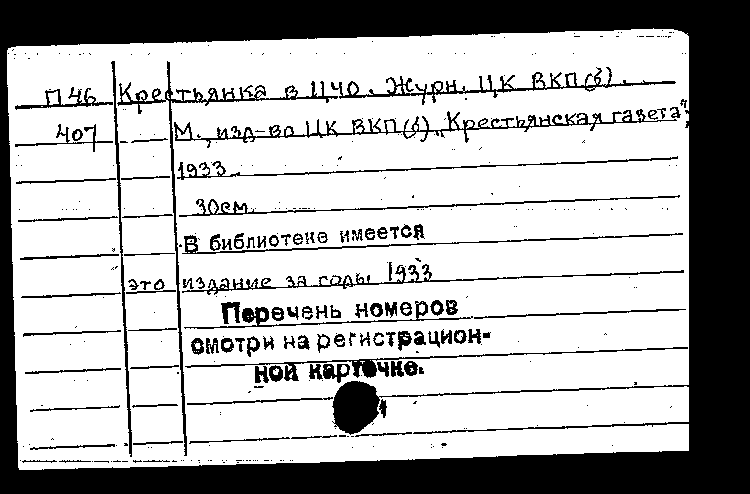 П 46 Крестьянка в ЦЧО. Журн. ЦК ВКП(б).
407 М., изд-во ЦК ВКП(б) „Крестьянская газета",
1933
30см.
В библиотеке имеется
это издание за годы 1933
Перечень номеров
смотри на регистрацион-
ной карточке.